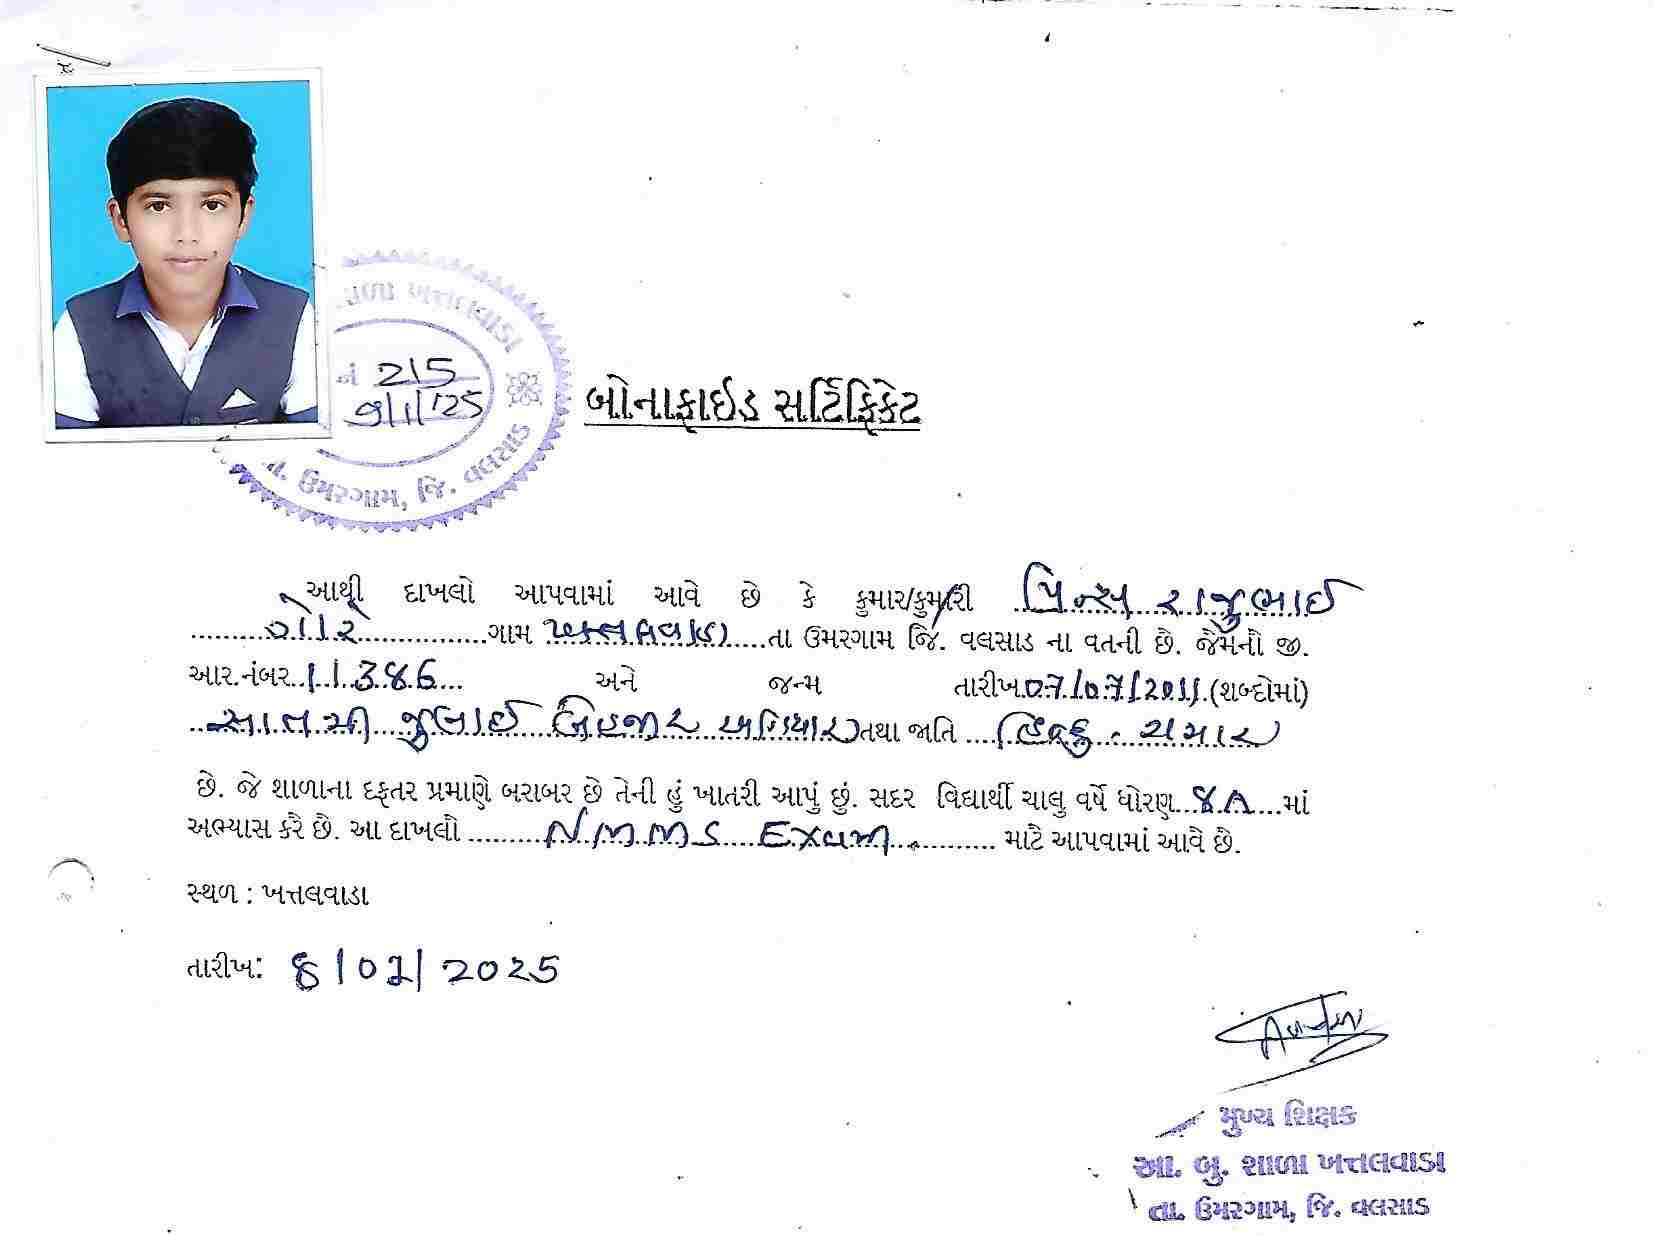 શાળા ખત્તલવાડા
નં 215
9/1/125
તા. ઉમરગામ, જિ. વલસાડ
બોનાફાઇડ સર્ટિફિકેટ
આથી દાખલો આપવામાં આવે છે કે કુમાર/કુમારી પ્રિન્સ રાજુભાઈ
ગોર ગામ ખત્તલવાડા તા ઉમરગામ જિ. વલસાડ ના વતની છે. જેમનો જી.
આર.નંબર 11386 અને જન્મ તારીખ 07/07/2011 (શબ્દોમાં)
સાતમી જુલાઈ બેહજાર અગિયાર તથા જાતિ હિન્દુ - ચમાર
છે. જે શાળાના દફતર પ્રમાણે બરાબર છે તેની હું ખાતરી આપું છું. સદર વિદ્યાર્થી ચાલુ વર્ષે ધોરણ 8A માં
અભ્યાસ કરે છે. આ દાખલો NMMS Exam માટે આપવામાં આવે છે.
સ્થળ : ખત્તલવાડા
તારીખ: 8/01/2025
મુખ્ય શિક્ષક
આ. બુ. શાળા ખત્તલવાડા
તા. ઉમરગામ, જિ. વલસાડ